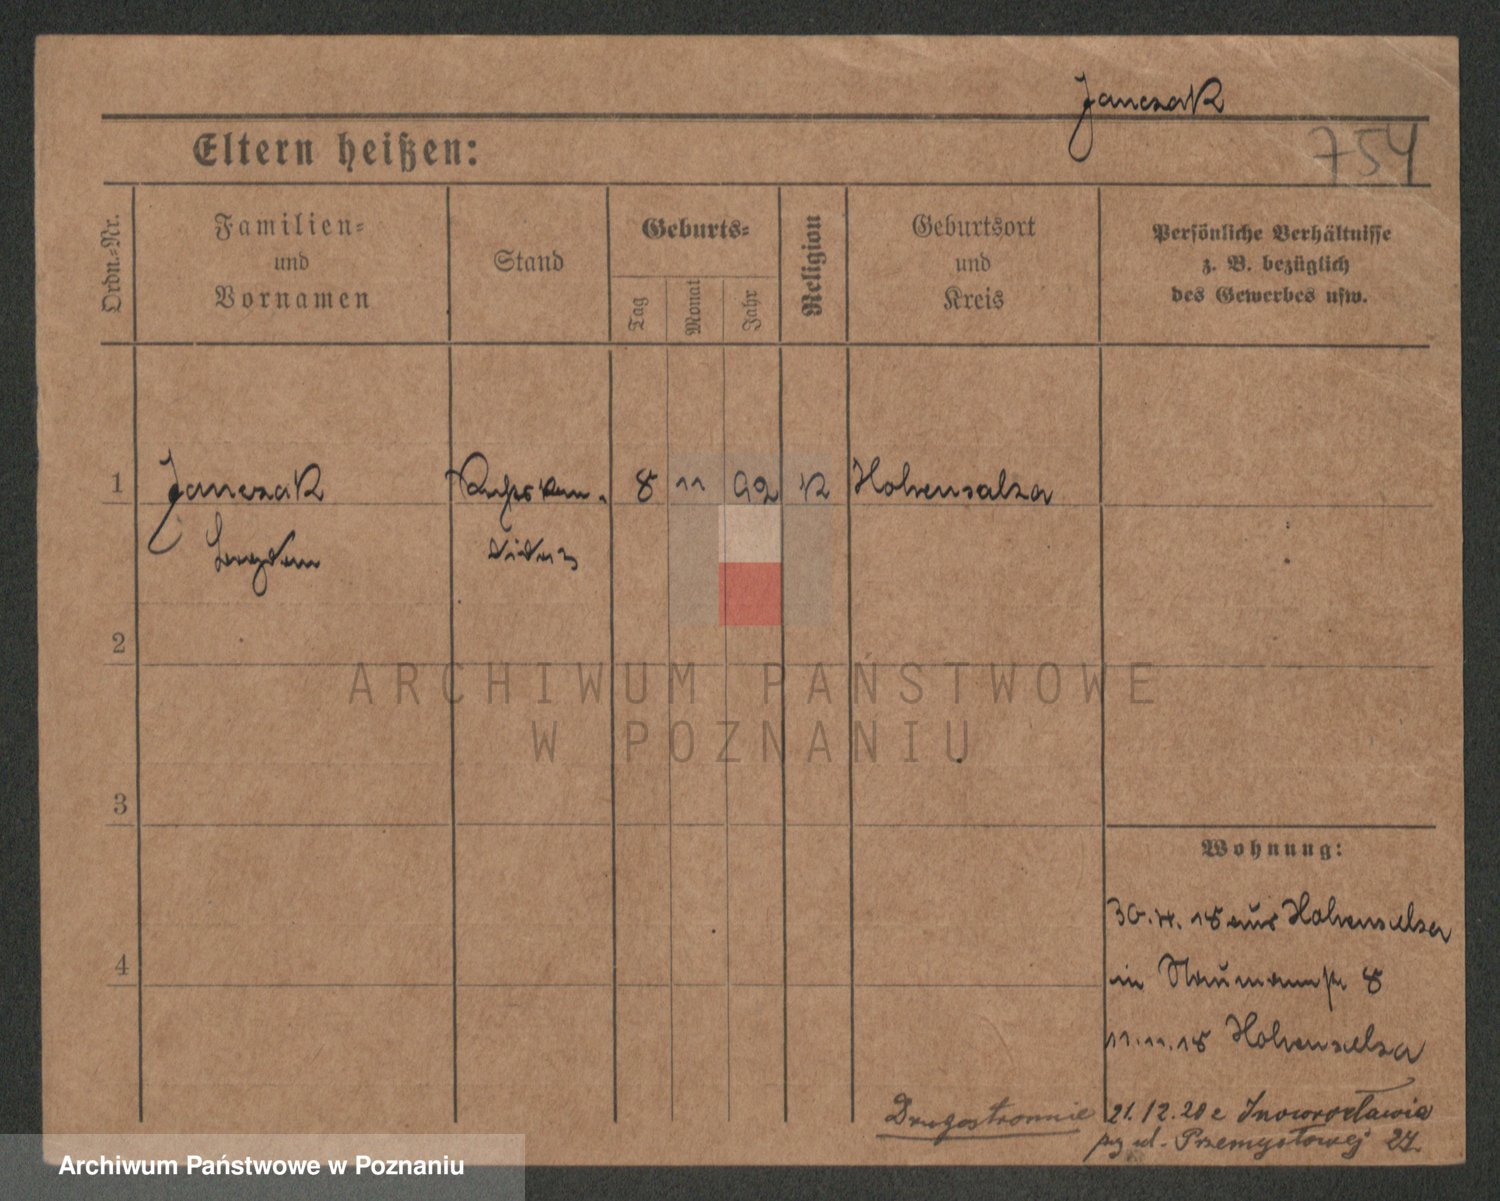 Janczak
754
Eltern heißen:
Ordn.-Nr.
Familien-
und
Vornamen
Stand
Geburts-
Tag
Monat
Jahr
Religion
Geburtsort
und
Kreis
Persönliche Verhältnisse
z. B. bezüglich
des Gewerbes usw.
1 Janczak 8 11 92 K Hohensalza
2
ARCHIWUM PAŃSTWOWE
W POZNANIU
3
Wohnung:
18 aus Hohensalza
4
in Naumannstr 8
11.11.18 Hohensalza
Drugostronnie 21.12.20 z Inowrocławia
przy ul. Przemysłowej 27.
Archiwum Państwowe w Poznaniu